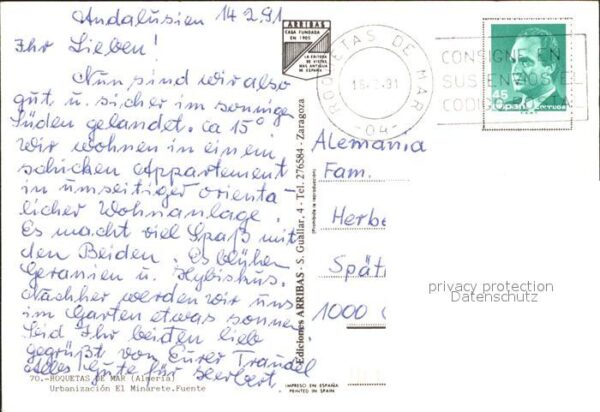 Andalusien 14 2.91
Ihr Lieben!
Nun sind wir also
gut u. sicher im sonnigen
Süden gelandet. ca 15°
Wir wohnen in einem
schicken Appartement
in umseitiger orienta-
licher Wohnanlage.
Es macht viel Spaß mit
den Beiden. Es blühen
Geranien u. Hybiskus.
Nachher werden wir uns
im Garten etwas sonnen
Seid Ihr beiden lieb
gegrüßt von Eurer Traudel
Alles Gute für Herbert.
70.-ROQUETAS DE MAR (Almería)
Urbanización El Minarete.Fuente
ARRIBAS
CASA FUNDADA
EN 1905
LA EDITORA
DE VISTAS
MAS ANTIGUA
DE ESPAÑA
Ediciones ARRIBAS - S. Guallar, 4 - Tel. 276584 - Zaragoza
(Prohibida la reproducción)
IMPRESO EN ESPAÑA
PRINTED IN SPAIN
ROQUETAS DE MAR
-04-
CONSIGNE EN
SUS ENVIOS EL
45
España
Alemania
Fam.
Herbe
Spät
1000
privacy protection
Datenschutz